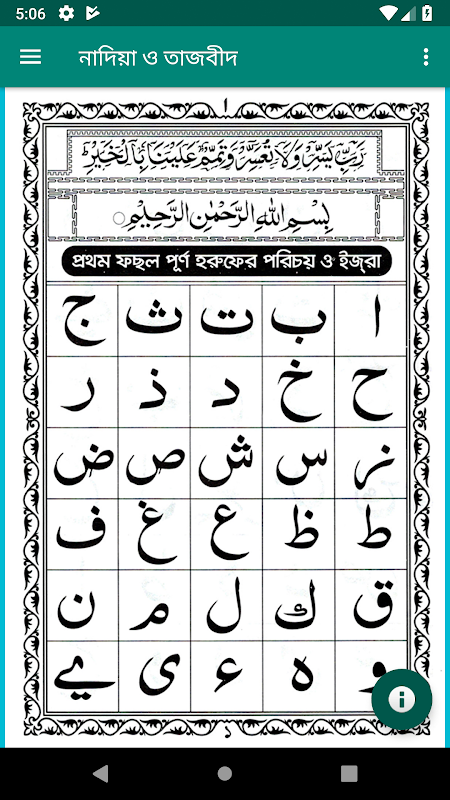 5:06
নাদিয়া ও তাজবীদ
١
رَبِّ يَسِّرْ وَلَا تُعَسِّرْ وَتَمِّمْ عَلَيْنَا بِالْخَيْرِ
بِسْمِ اللهِ الرَّحْمٰنِ الرَّحِيْمِ
প্রথম ফছল পূর্ণ হরুফের পরিচয় ও ইজ্রা
ا ب ت ث ج
ح خ د ذ ر
ز س ش ص ض
ط ظ ع غ ف
ق ك ل م ن
و ه ء ی ے
১